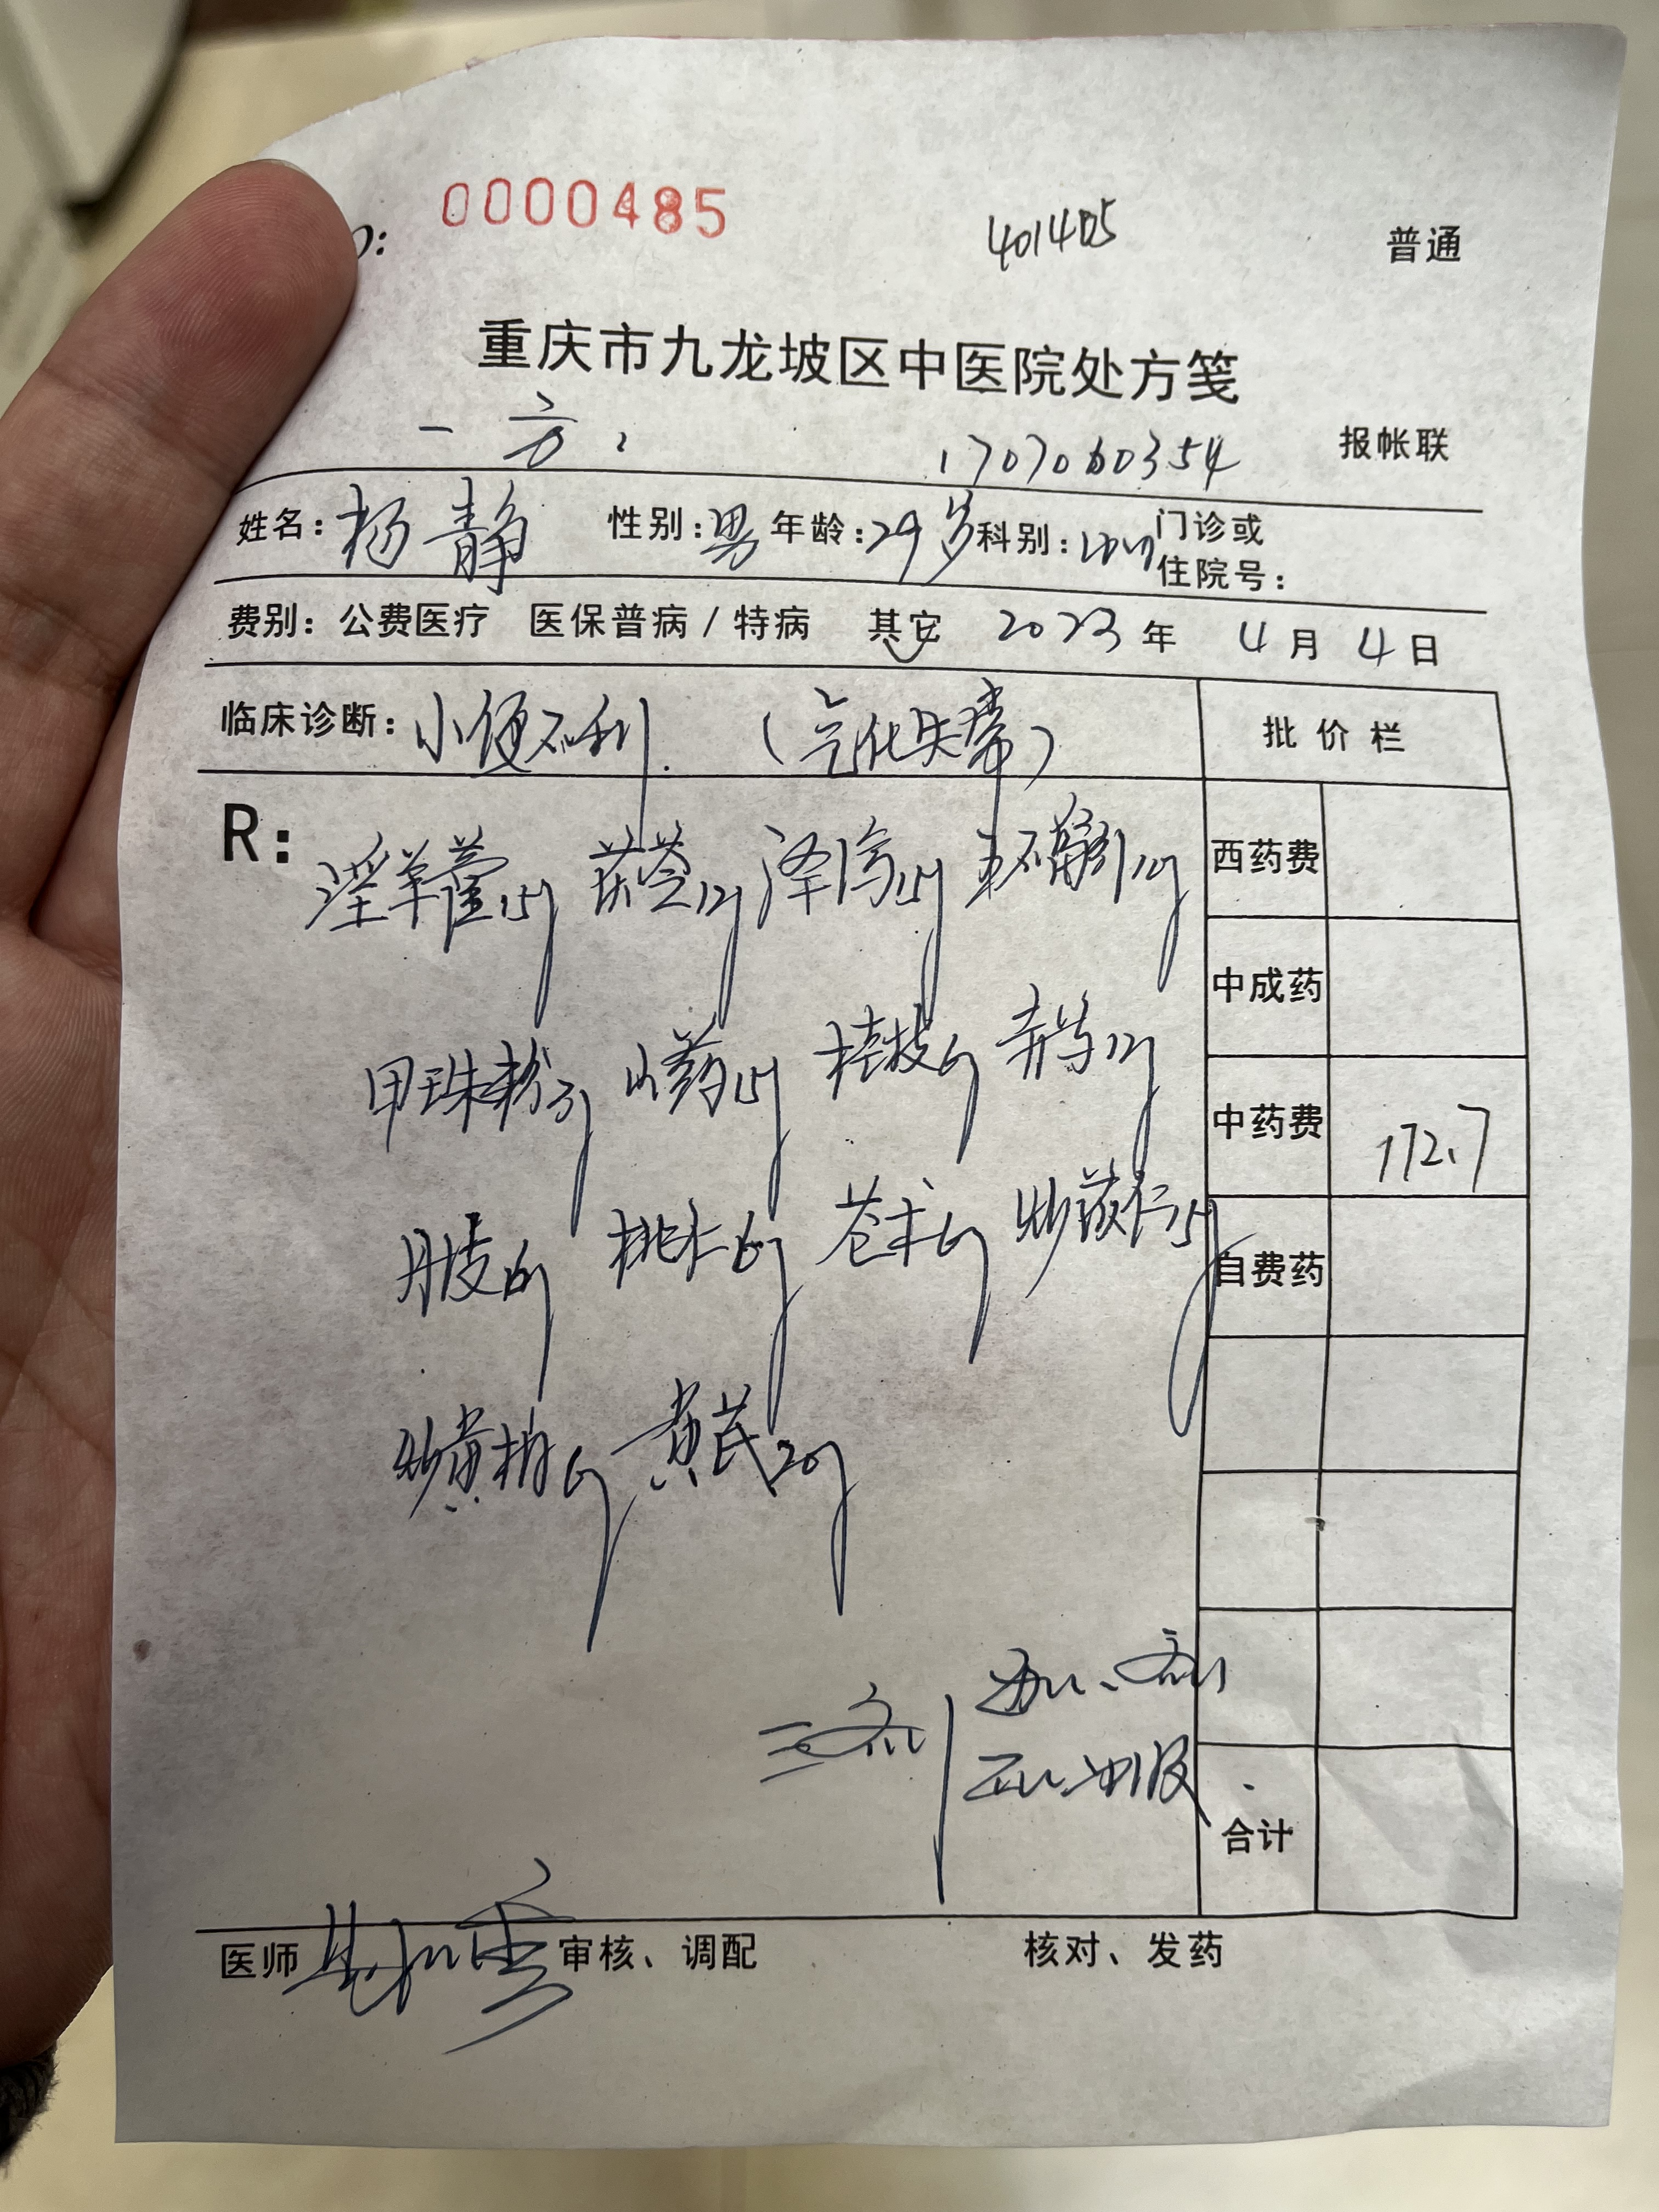 0000485 401405 普通
重庆市九龙坡区中医院处方笺
一方: 1707060354 报帐联
姓名:杨静 性别:男 年龄:29岁 科别: 门诊或
住院号:
费别:公费医疗 医保普病/特病 其它 2023年4月4日
临床诊断:小便不利.(气化失常) 批价栏
R:
淫羊藿15g 茯苓12g 泽泻15g 王不留行12g 西药费
中成药
甲珠粉3g 山药15g 桂枝6g 赤芍12g
中药费 172.7
丹皮6g 桃仁6g 苍术6g 炒苡仁15g
自费药
炒黄柏6g 黄芪20g
三剂
合计
医师 审核、调配 核对、发药